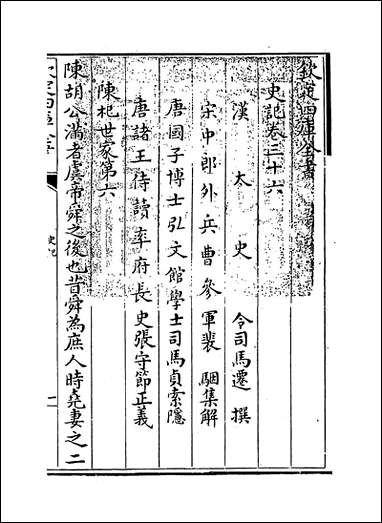 欽定四庫全書
史記卷三十六
漢太史令司馬遷撰
宋中郎外兵曹參軍裴駰集解
唐國子博士弘文館學士司馬貞索隱
唐諸王侍讀率府長史張守節正義
陳杞世家第六
陳胡公滿者虞帝舜之後也昔舜為庶人時堯妻之二
欽定四庫全書
史記